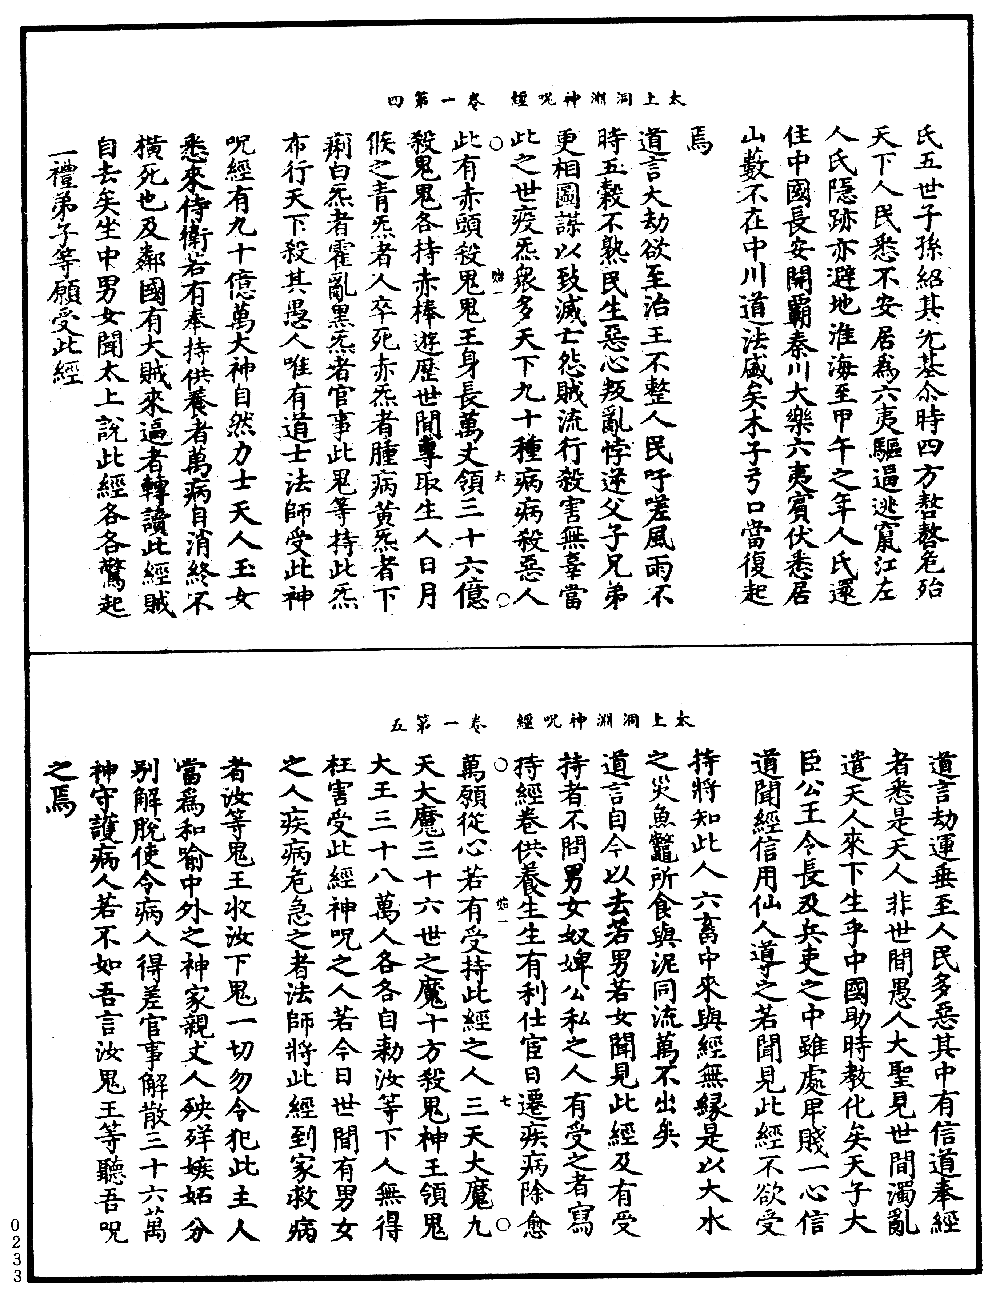 太上洞淵神呪經　卷一第四
氏五世子孫紹其先基尒時四方嗸嗸危殆
天下人民悉不安居爲六夷驅逼逃竄江左
人民隱跡亦避地淮海至甲午之年人民還
住中國長安開霸秦川大樂六夷賓伏悉居
山藪不在中川道法盛矣木子弓口當復起
焉
道言大劫欲至治王不整人民吁嗟風雨不
時五穀不熟民生惡心叛亂悖逆父子兄弟
更相圖謀以致滅亡怨賊流行殺害無辜當
此之世疫炁衆多天下九十種病病殺惡人
此有赤頭殺鬼鬼王身長萬丈領三十六億
殺鬼鬼各持赤棒遊歷世間專取生人日月
候之青炁者人卒死赤炁者腫病黃炁者下
痢白炁者霍亂黑炁者官事此鬼等持此炁
布行天下殺其愚人唯有道士法師受此神
呪經有九十億萬大神自然力士天人玉女
悉來侍衛若有奉持供養者萬病自消終不
橫死也及鄰國有大賊來逼者轉讀此經賊
自去矣坐中男女聞太上說此經各各驚起
一禮弟子等願受此經
太上洞淵神呪經　卷一第五
道言劫運垂至人民多惡其中有信道奉經
者悉是天人非世間愚人大聖見世間濁亂
遣天人來下生乎中國助時教化矣天子大
臣公王令長及兵吏之中雖處卑賤一心信
道聞經信用仙人導之若聞見此經不欲受
持將知此人六畜中來與經無緣是以大水
之災魚鼈所食與泥同流萬不出矣
道言自今以去若男若女聞見此經及有受
持者不問男女奴婢公私之人有受之者寫
持經卷供養生生有利仕宦日遷疾病除愈
萬願從心若有受持此經之人三天大魔九
天大魔三十六世之魔十方殺鬼神王領鬼
大王三十八萬人各各自勑汝等下人無得
枉害受此經神呪之人若今日世間有男女
之人疾病危急之者法師將此經到家救病
者汝等鬼王收汝下鬼一切勿令犯此主人
當爲和喻中外之神家親丈人殃殍嫉妬分
別解脫使令病人得差官事解散三十六萬
神守護病人若不如吾言汝鬼王等聽吾呪
之焉
0233